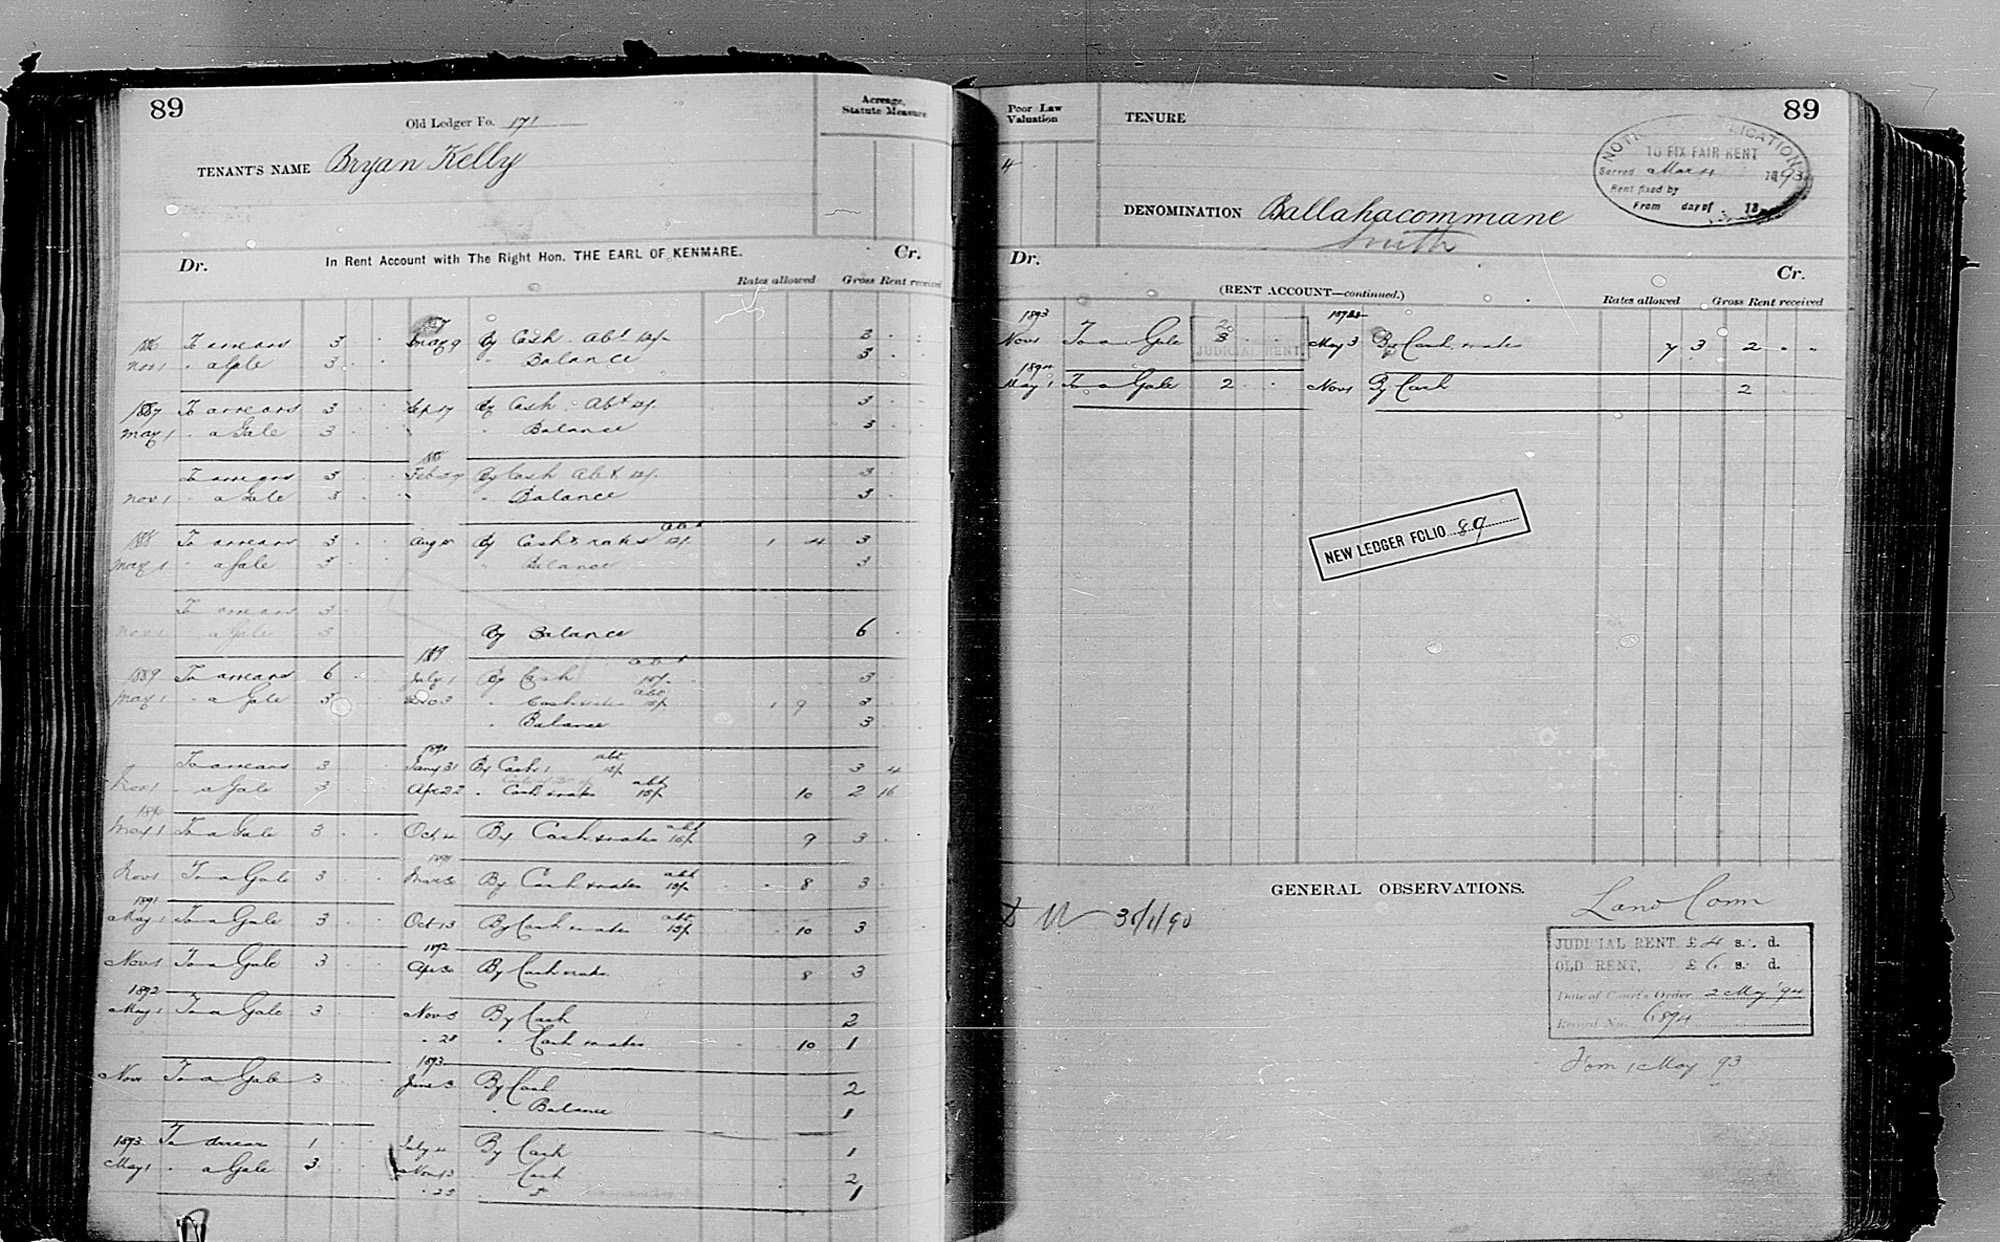 89
Old Ledger Fo. 171
Acreage,
Statute Measure
TENANT'S NAME Bryan Kelly
In Rent Account with The Right Hon. THE EARL OF KENMARE.
Dr. Cr.
Rates allowed Gross Rent received
1886 To arrears 3 May 9 By Cash Abt 3
Nov 1 " a Gale 3 " Balance 3
1887 To arrears 3 Sep 17 By Cash Abt 3
May 1 " a Gale 3 " Balance 3
188
To arrears 3 Feb By Cash Abt 3
Nov 1 " a Gale 3 " Balance 3
abt
1888 To arrears 3 Aug By Cash & rates 1 4 3
May 1 " a Gale 3 " Balance 3
To arrears 3
Nov 1 " a Gale 3 By Balance 6
1889 abt
1889 To arrears 6 July 1 By Cash 3
May 1 " a Gale 3 Dec 3 " Cash & rates abt 1 9 3
" Balance 3
1890
To arrears 3 Jany 31 By Cash abt 3 4
Nov 1 " a Gale 3 Apr 22 " Cash & rates abt 10 2 16
1890
May 1 To a Gale 3 Oct By Cash & rates abt 9 3
1891
Nov 1 To a Gale 3 Mar By Cash & rates abt 8 3
1891
May 1 To a Gale 3 Oct 13 By Cash & rates abt 10 3
1892
Nov 1 To a Gale 3 Apr By Cash & rates 8 3
1892
May 1 To a Gale 3 Nov 5 By Cash 2
" 28 " Cash & rates 10 1
1893
Nov 1 To a Gale 3 June 3 By Cash 2
" Balance 1
1893 To arrear 1 July By Cash 1
May 1 " a Gale 3 Nov 13 Cash 2
" 25 1
89
Poor Law
Valuation
4
TENURE
NOTICE OF APPLICATION
TO FIX FAIR RENT
Served Mar 1893
Rent fixed by
From day of 18
DENOMINATION Ballahacommane
Smith
Dr. Cr.
(RENT ACCOUNT—continued.)
Rates allowed Gross Rent received
1893
Nov 1 To a Gale 3 May 3 By Cash & rates 7 3 2
JUDICIAL RENT.
1894
May 1 To a Gale 2 Nov 1 By Cash 2
NEW LEDGER FOLIO 89
GENERAL OBSERVATIONS.
Land Comn
JUDICIAL RENT, £4 s. d.
OLD RENT, £6 s. d.
Date of Court's Order 2 May '94
Record No. 6894
From 1 May 93